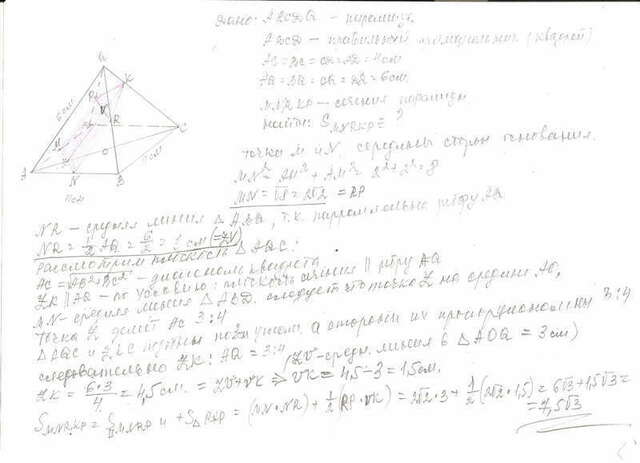 Дано: ABCDQ – пирамида
ABCD – правильный (квадрат)
AB = BC = CD = AD = 4см
AQ = BQ = CQ = DQ = 6см
MNRKP – сечение пирамиды
найти: S MNRKP = ?
точка M и N, середины сторон основания.
MN² = AN² + AM² = 2² + 2² = 8
MN = √8 = 2√2 = RP
NR – средняя линия Δ ABQ, т.к. параллельно ребру AQ
NR = 1/2 AQ = 6/2 = 3 см
Рассмотрим плоскость Δ AQC:
AC = √AB²+BC² – диагональ квадрата
ZK ∥ AQ – по условию: плоскость сечения ∥ ребру AQ
MN – средняя линия Δ ABD, следует что точка Z на средине AO,
Точка Z делит AC 3:4
Δ AQC и ZKC подобны по углам. а стороны их пропорциональны 3:4
следовательно ZK : AQ = 3:4
(ZV – средн. линия в Δ AOQ = 3см)
ZK = 6·3/4 = 4,5 см. = ZV + VK ⇒ VK = 4,5 – 3 = 1,5см.
S MNRKP = S MNRP + S Δ RKP = (MN · NR) + 1/2 (RP · VK) = 2√2·3 + 1/2 (2√2·1,5) = 6√3 + 1,5√3 =
= 7,5√3
Q
K
P
V
R
6см
M
C
O
Z
A
N
B